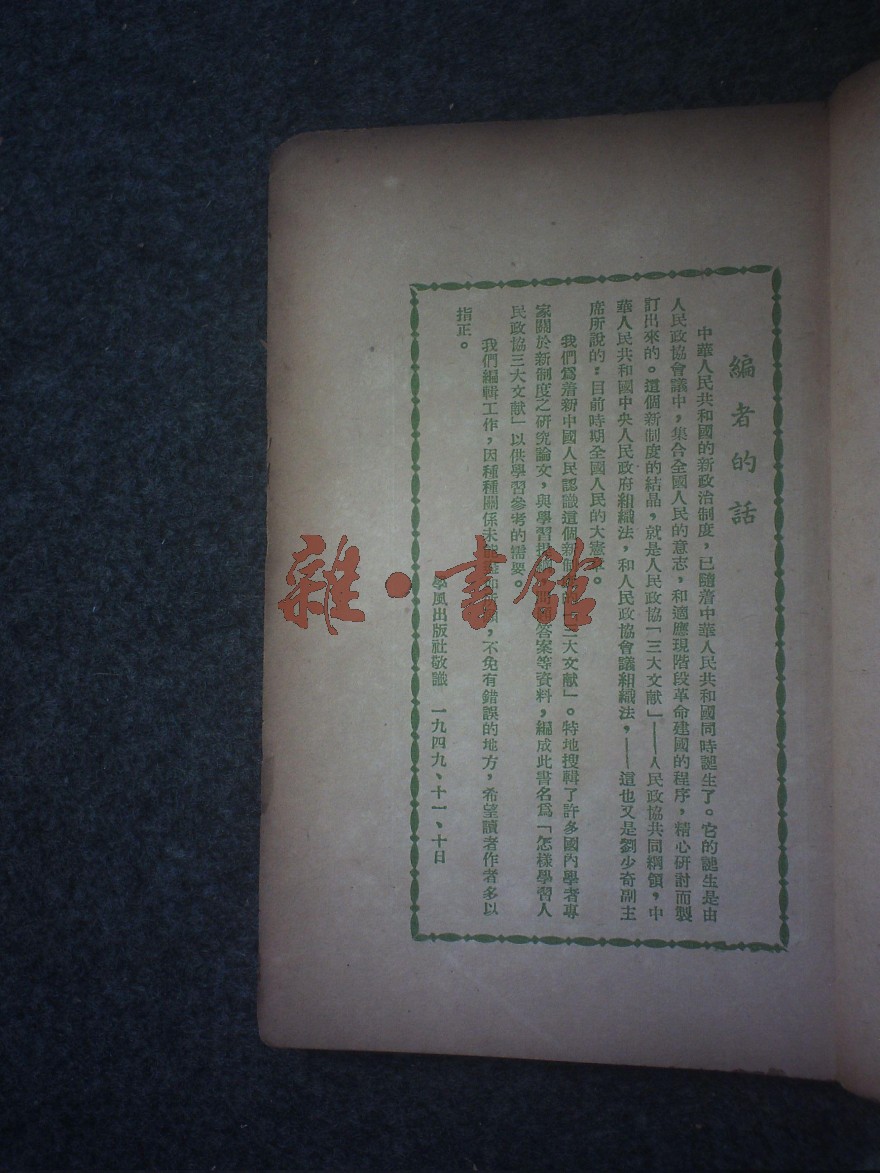 編者的話
中華人民共和國的新政治制度，已隨着中華人民共和國同時誕生了。它的誕生是由
人民政協會議中，集合全國人民的意志，和適應現階段革命建國的程序，精心研討而製
訂出來的。這個新制度的結晶，就是人民政協「三大文献」——人民政協共同綱領，中
華人民共和國中央人民政府組織法，和人民政協會議組織法，——這也又是劉少奇副主
席所說的：目前時期全國人民的大憲章。
我們爲着新中國人民認識這個新制度的「三大文献」。特地搜輯了許多國內學者專
家關於新制度之研究論文，與學習提綱答案等資料，編成此書名爲「怎樣學習人
民政協三大文献」以供學習參考的需要。
我們編輯工作，因種種關係未，不免有錯誤的地方，希望讀者作者多以
指正。
學風出版社敬識 一九四九、十一、十日
雜·書館